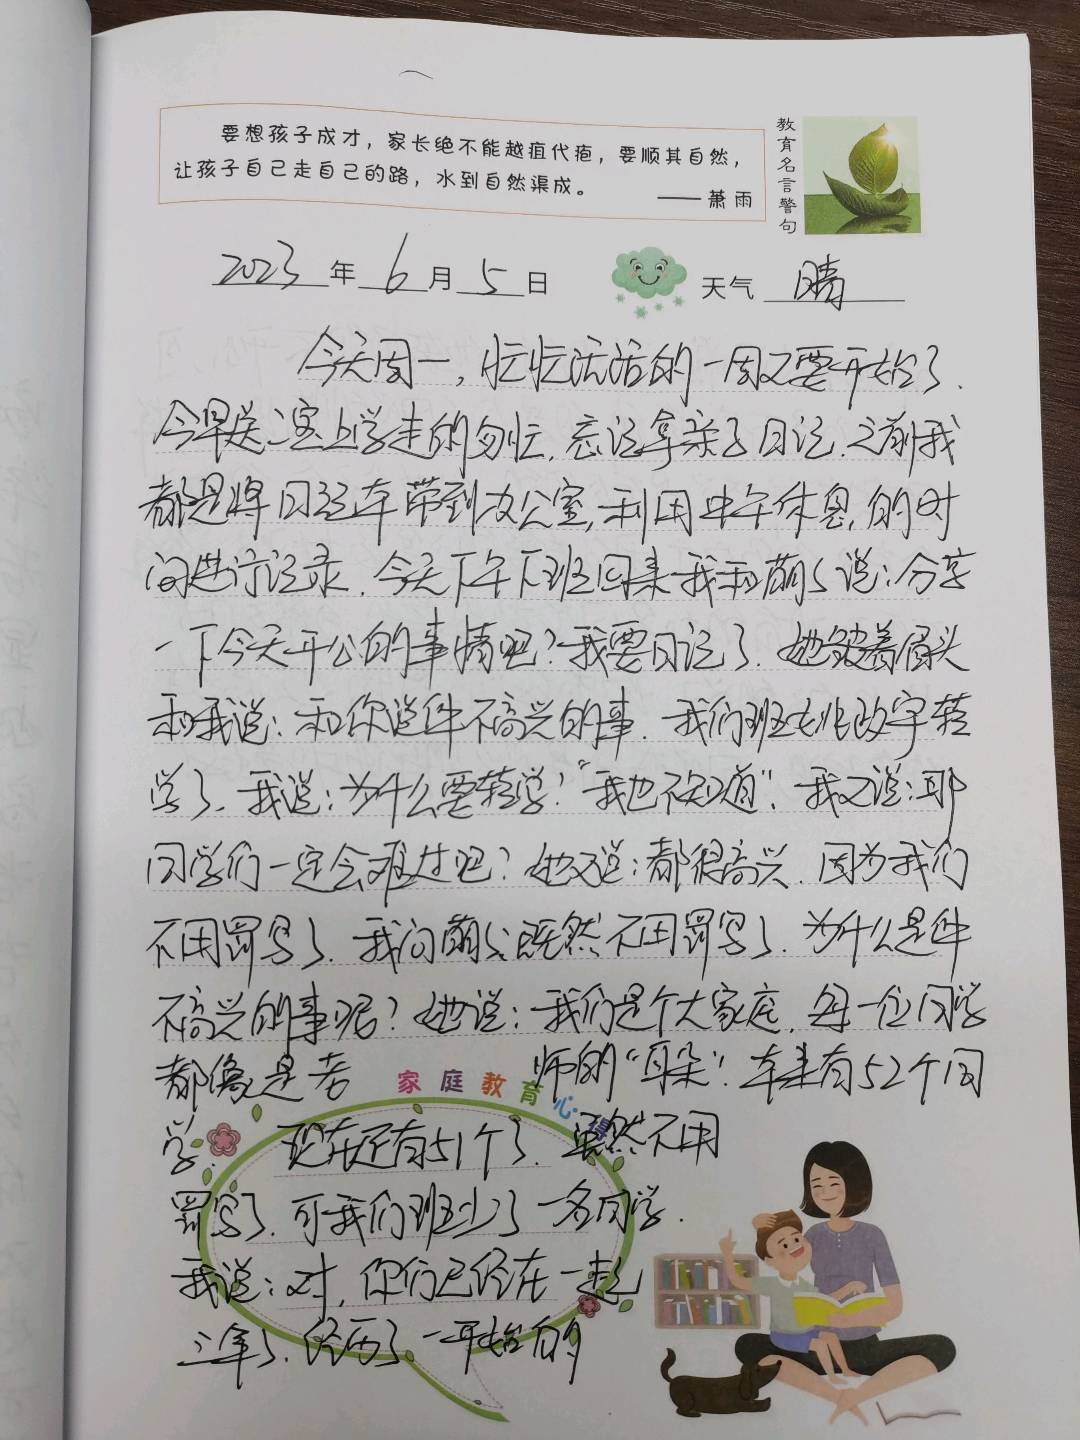 要想孩子成才，家长绝不能越疽代疱，要顺其自然，
让孩子自己走自己的路，水到自然渠成。
——萧雨
教育名言警句
2023年6月5日 天气 晴
今天周一，忙忙活活的一周又要开始了.
今早送二宝上学走的匆忙,忘记拿亲子日记.之前我
都是将日记本带到办公室,利用中午休息,的时
间进行记录.今天下午下班回来我和萌萌说:分享
一下今天开心的事情吧?我要日记了.她皱着眉头
和我说:和你说件不高兴的事.我们班 转
学了.我说:为什么要转学?"我也不知道".我又说:那
同学们一定会难过吧?她又说:都很高兴.因为我们
不用罚写了.我问萌萌:既然不用罚写了.为什么是件
不高兴的事呢?她说:我们是个大家庭.每一位同学
都像是老 师的"耳朵".本来有52个同
家庭教育心得
学. 现在还有51个了.虽然不用
罚写了.可我们班少了一名同学.
我说:对,你们已经在一起
三年了.经历了一开始的